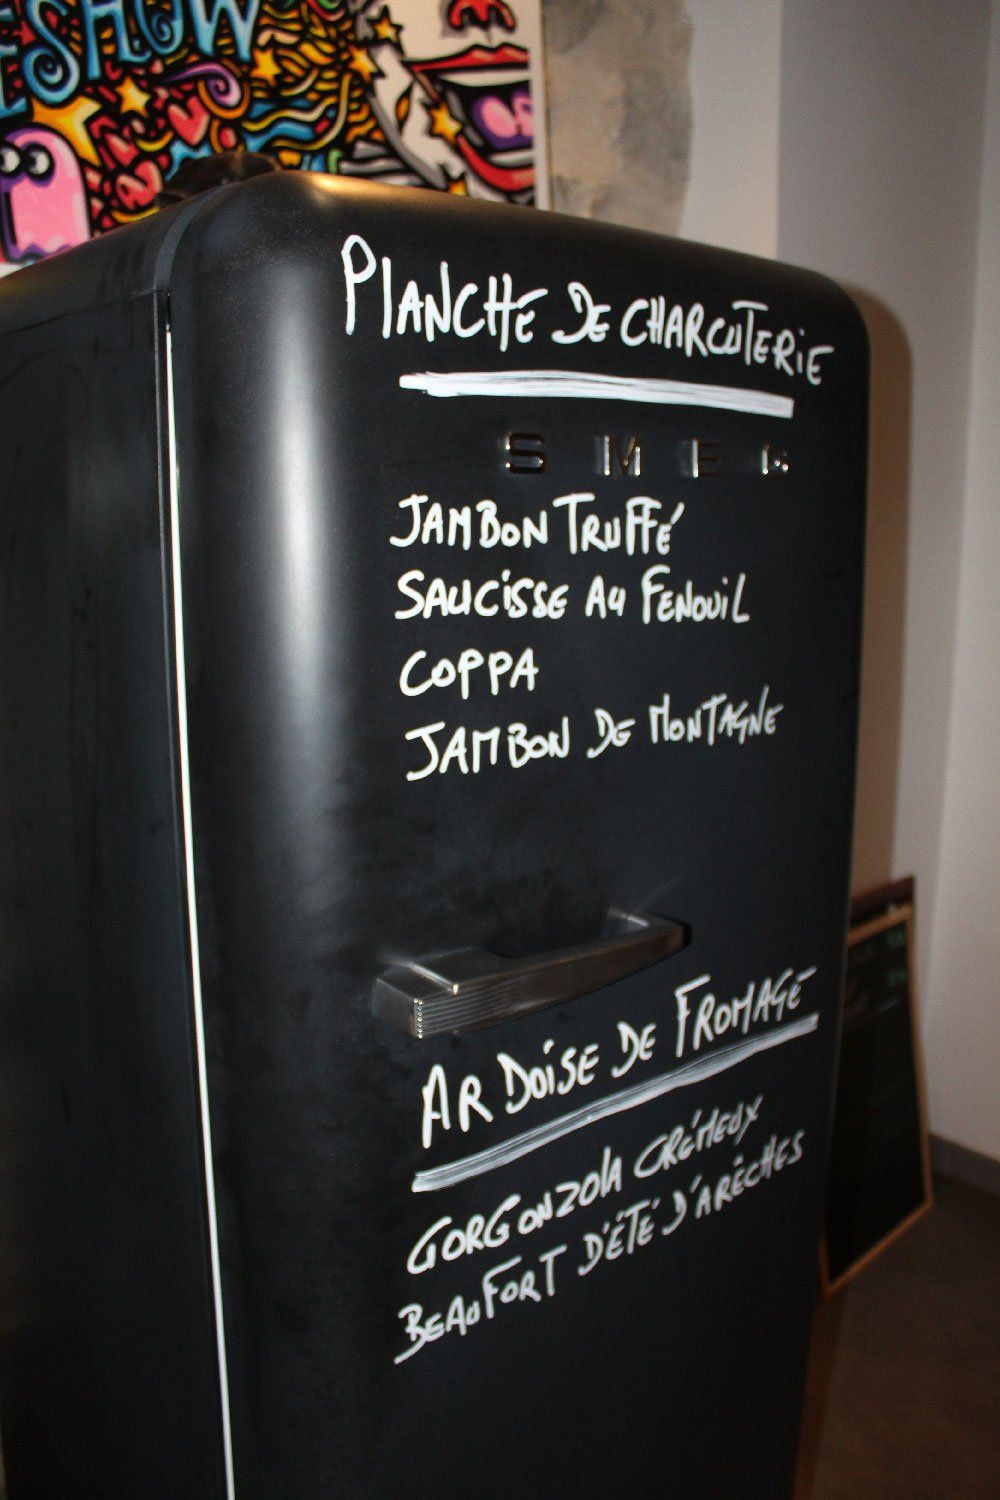 ESHOW
PLANCHE DE CHARCUTERIE
SMEG
JAMBON TRUFFÉ
SAUCISSE AU FENOUIL
COPPA
JAMBON DE MONTAGNE
ARDOISE DE FROMAGE
GORGONZOLA CRÉMEUX
BEAUFORT D'ÉTÉ D'ARÊCHES